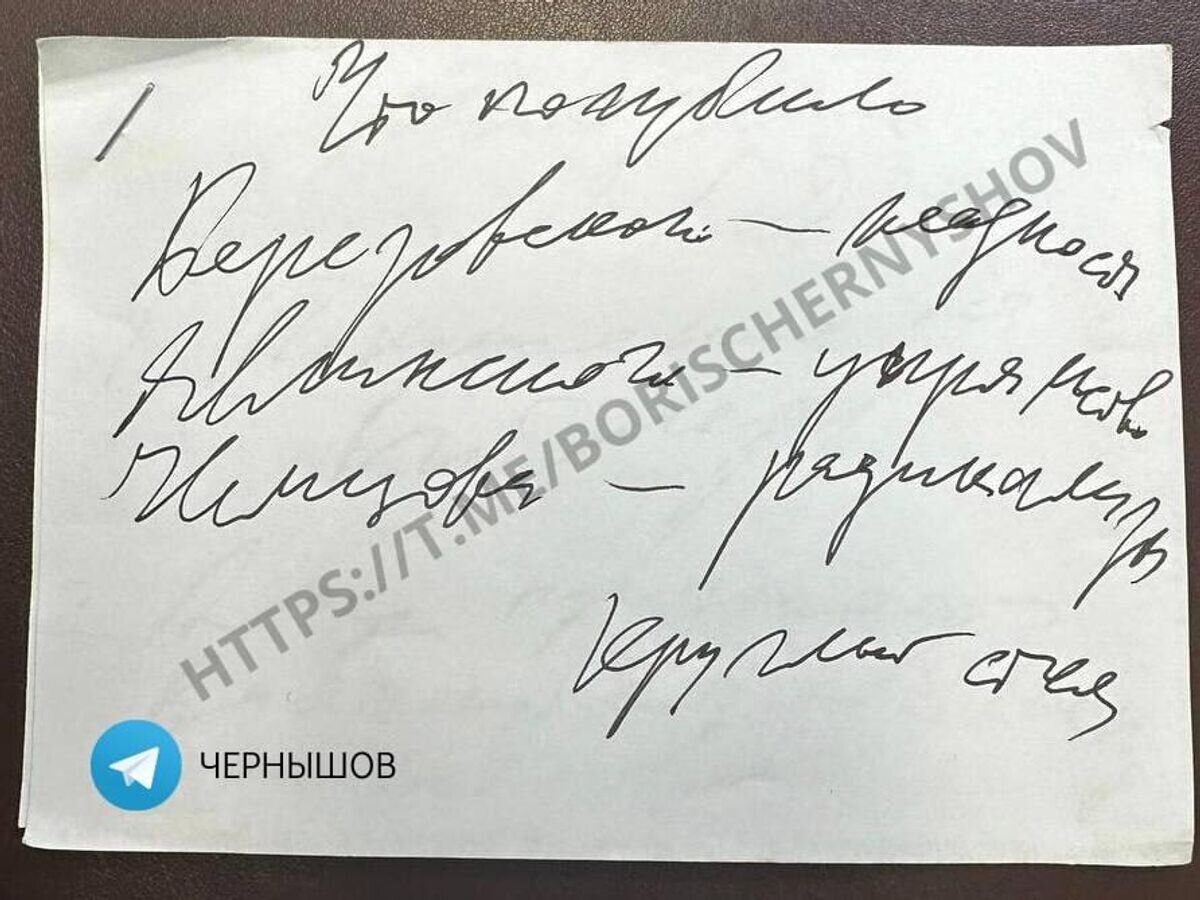 1 Что погубило
Березовского — жадность
Явлинского — упрямство
Немцова — радикализм
Круглый стол
HTTPS://T.ME/BORISCHERNYSHOV
ЧЕРНЫШОВ